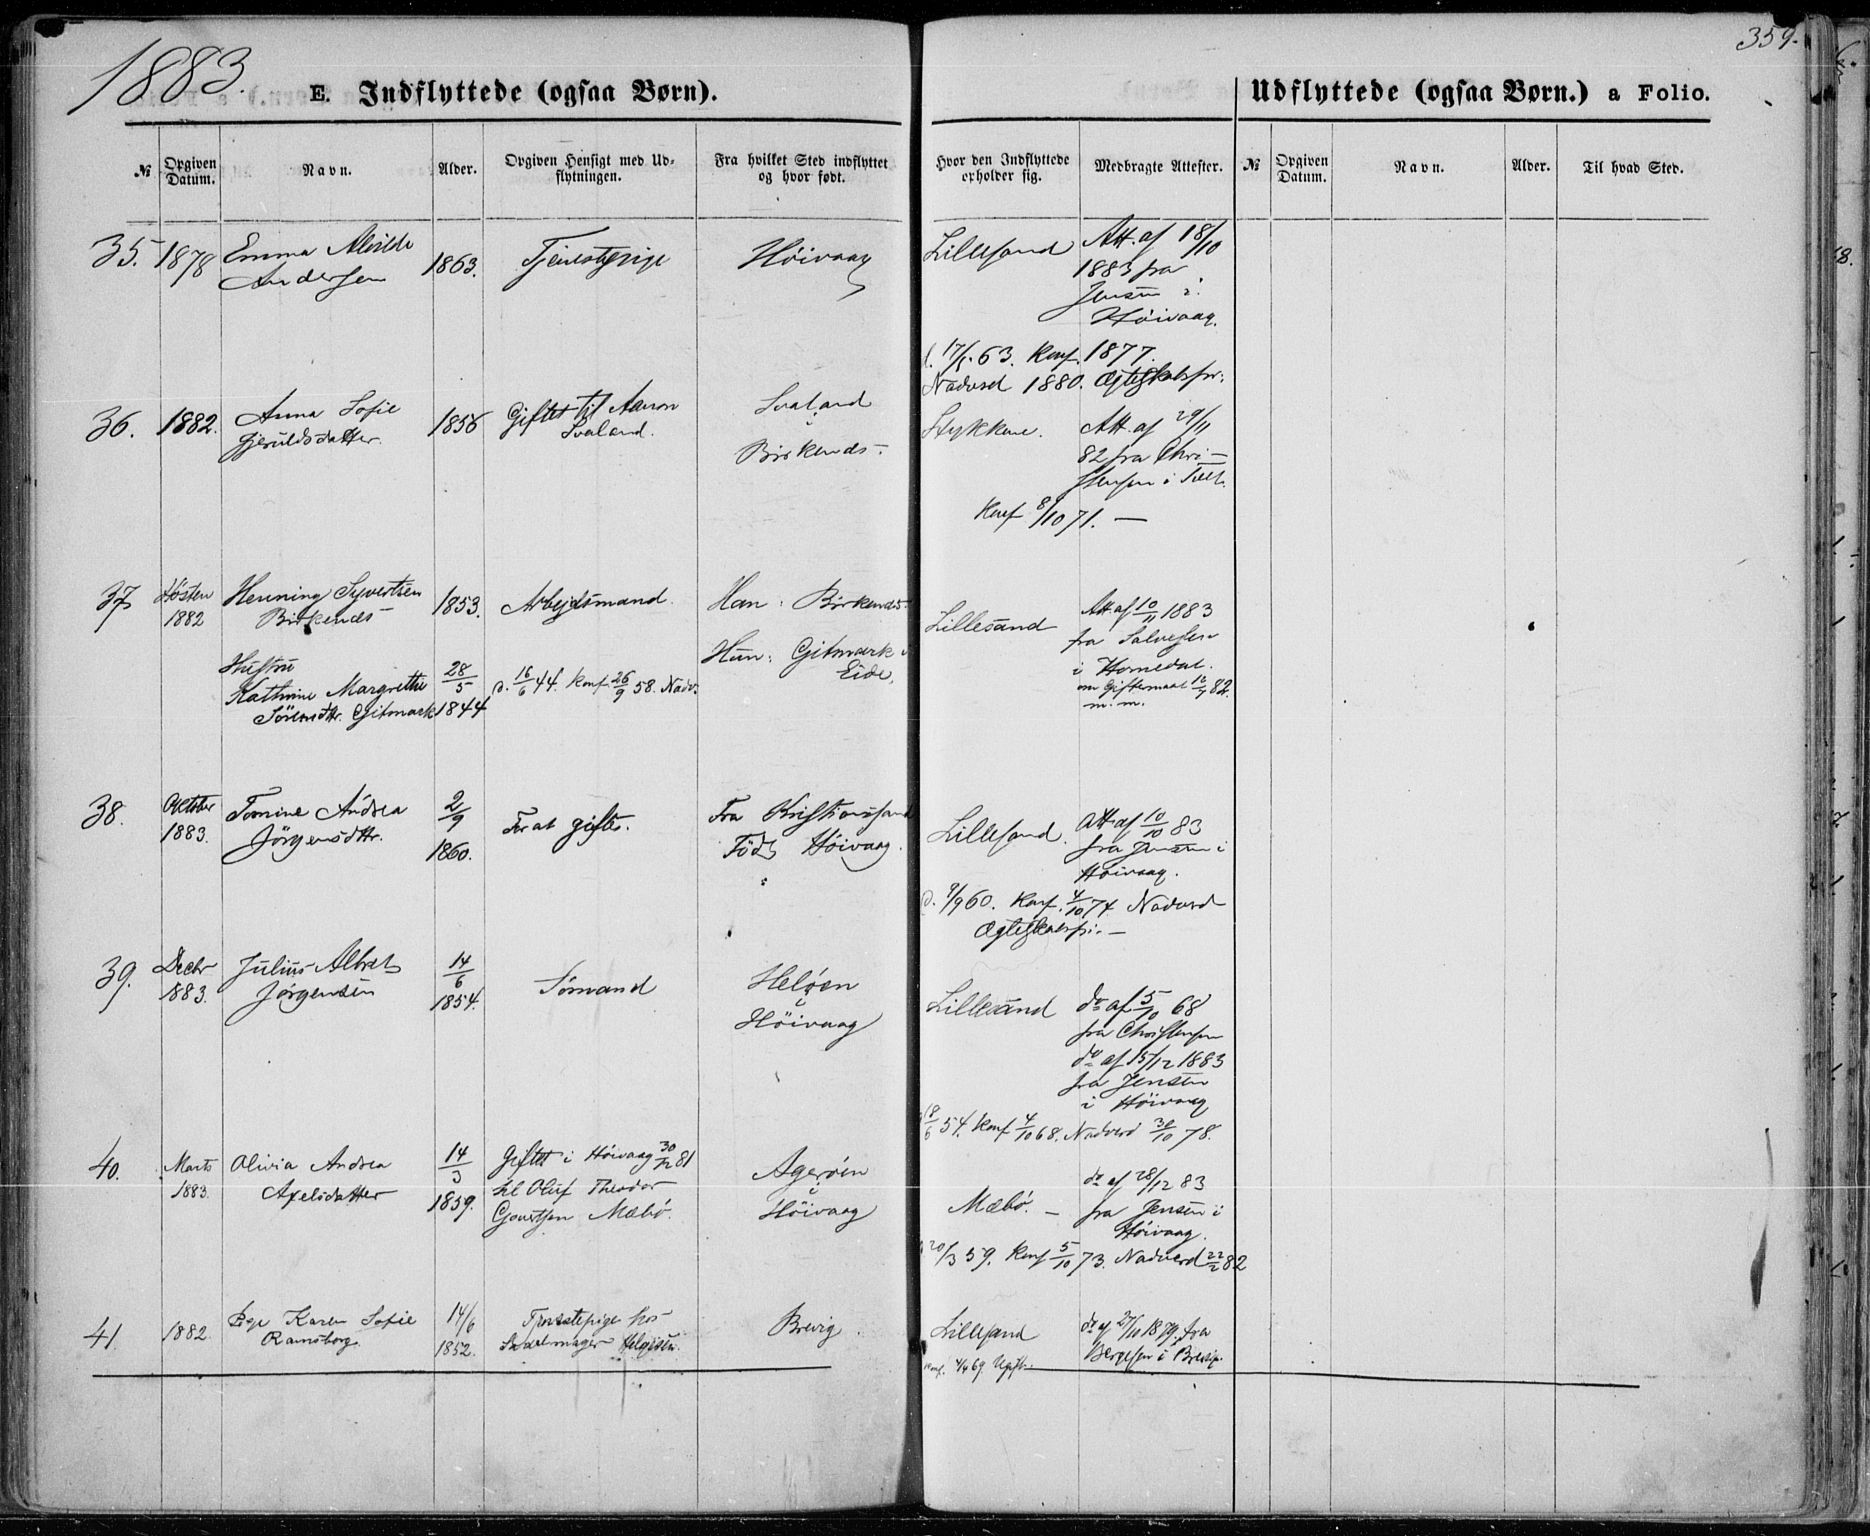 1883.
359.
E. Indflyttede (ogsaa Børn).
Udflyttede (ogsaa Børn.) a Folio.
№
Opgiven Datum.
Navn.
Alder.
Opgiven Hensigt med Ud-
flytningen.
Fra hvilket Sted indflyttet
og hvor født.
Hvor den Indflyttede
opholder sig.
Medbragte Attester.
№
Opgiven Datum.
Navn.
Alder.
Til hvad Sted.
35. 1878 Emma Alvilde
Andersen
1863. Tjenestepige
Höivaag
Lillesand
Att. af 18/10
1883 fra
Jensen i
Höivaag.
17/5 63. Konf. 1877.
Nadverd 1880. Ægteskabsfri.
36. 1882. Anna Sofie
Gjeruldsdatter.
1856
Giftet til Aanon
Svaland.
Svaland
i
Birkends.
Stykkene.
Att. af 29/11
82 fra Chri-
stensen i
Konf 8/10 71. —
37 Høsten
1882
Henning Syvertsen
Birkends
1853. Arbejdsmand.
Han: Birkends.
Hun: Gitmark i
Eide.
Hustru
Kathrine Margrethe
Sörensdtr. Gitmark
28/5
1844
d. 16/6 44. Konf 26/9 58. Nadv.
Lillesand
Att. af 10/11 1883
fra Salvesen
i Homedal.
om Giftermaal 82.
m. m.
38. Oktober
1883.
Tomine Andrea
Jörgensdtr.
2/9
1860.
For at giftes.
Fra Kristianssand
Födt Höivaag.
Lillesand.
Att af 10/10 83
fra Jensen i
Höivaag.
d. 9/9 60. Konf. 4/10 74 Nadverd
Ægteskabsfri. —
39. Decbr
1883.
Julius Albret
Jørgensen
14/6
1854.
Sömand
Helöen
i
Höivaag
Lillesand
do af 5/10 68
fra Christensen
do af 15/12 1883
fra Jensen
i Höivaag
18/6 54. Konf 4/10 68. Nadverd 30/10 78.
40. Marts
1883.
Olivia Andrea
Axelsdatter
14/3
1859.
Giftet i Höivaag 30/12 81
til Oluf Theodor
Govertsen Mæbö.
Ageröen
i
Höivaag
Mæbö. —
do af 28/12 83
fra Jensen i
Höivaag.
20/3 59. Konf 5/10 73. Nadverd 22/2 82
41. 1882. Pige Karen Sofie
Ramsborg
14/6
1852.
Tjenestepige hos
Helgesen.
Brevig.
Lillesand
do af 27/10 1879 fra
Bergesen i Brevig.
Konf. 4/4 69 Ugift.